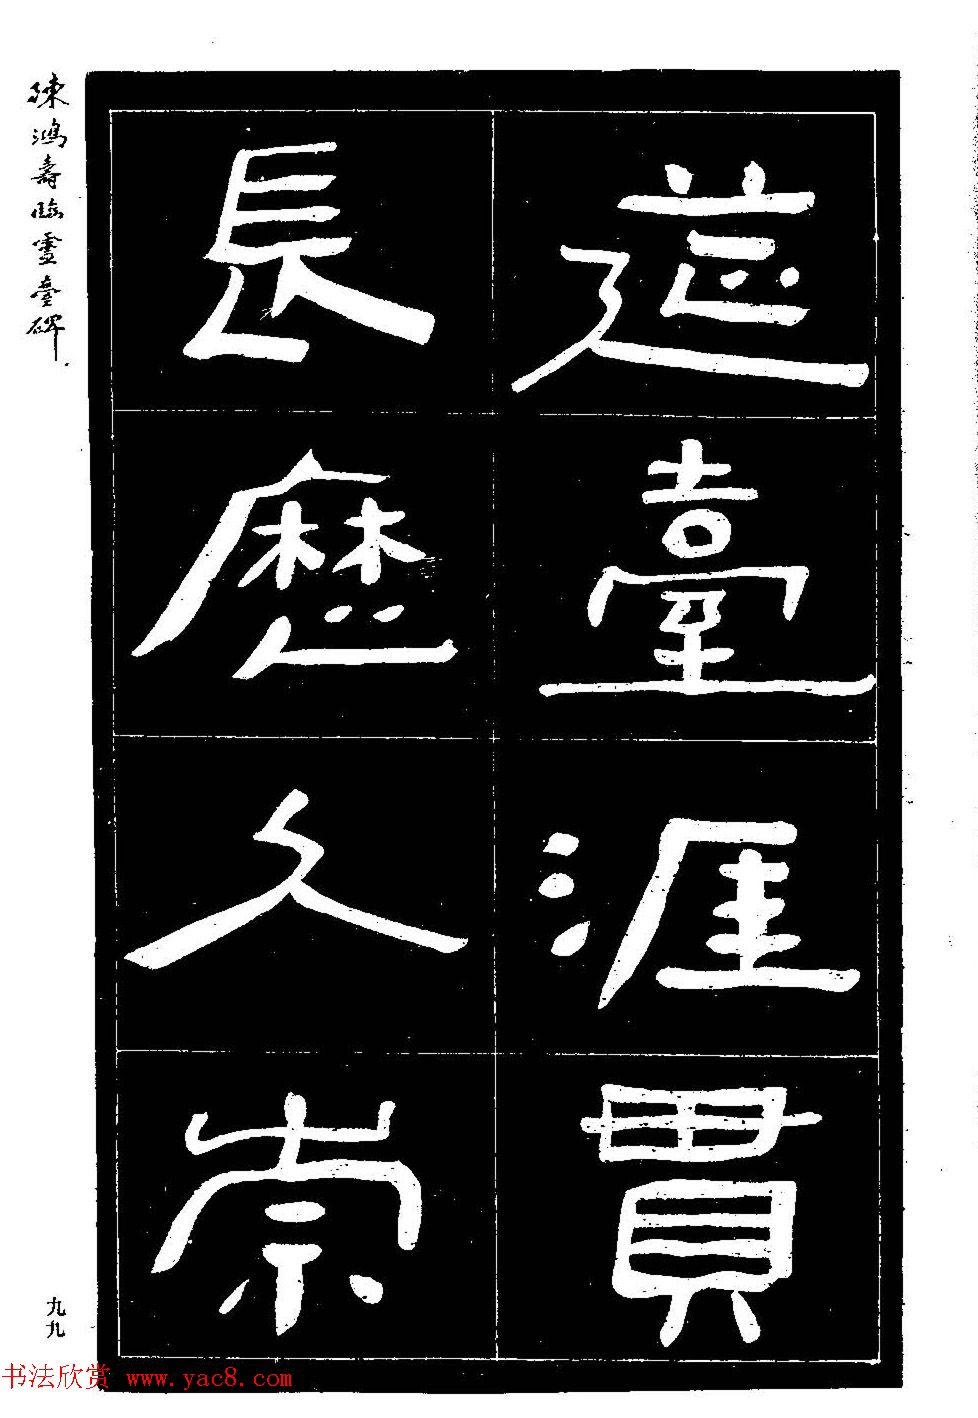 臺涯貫
長歷久崇
陳鴻壽臨靈臺碑
九九
书法欣赏 www.yac8.com